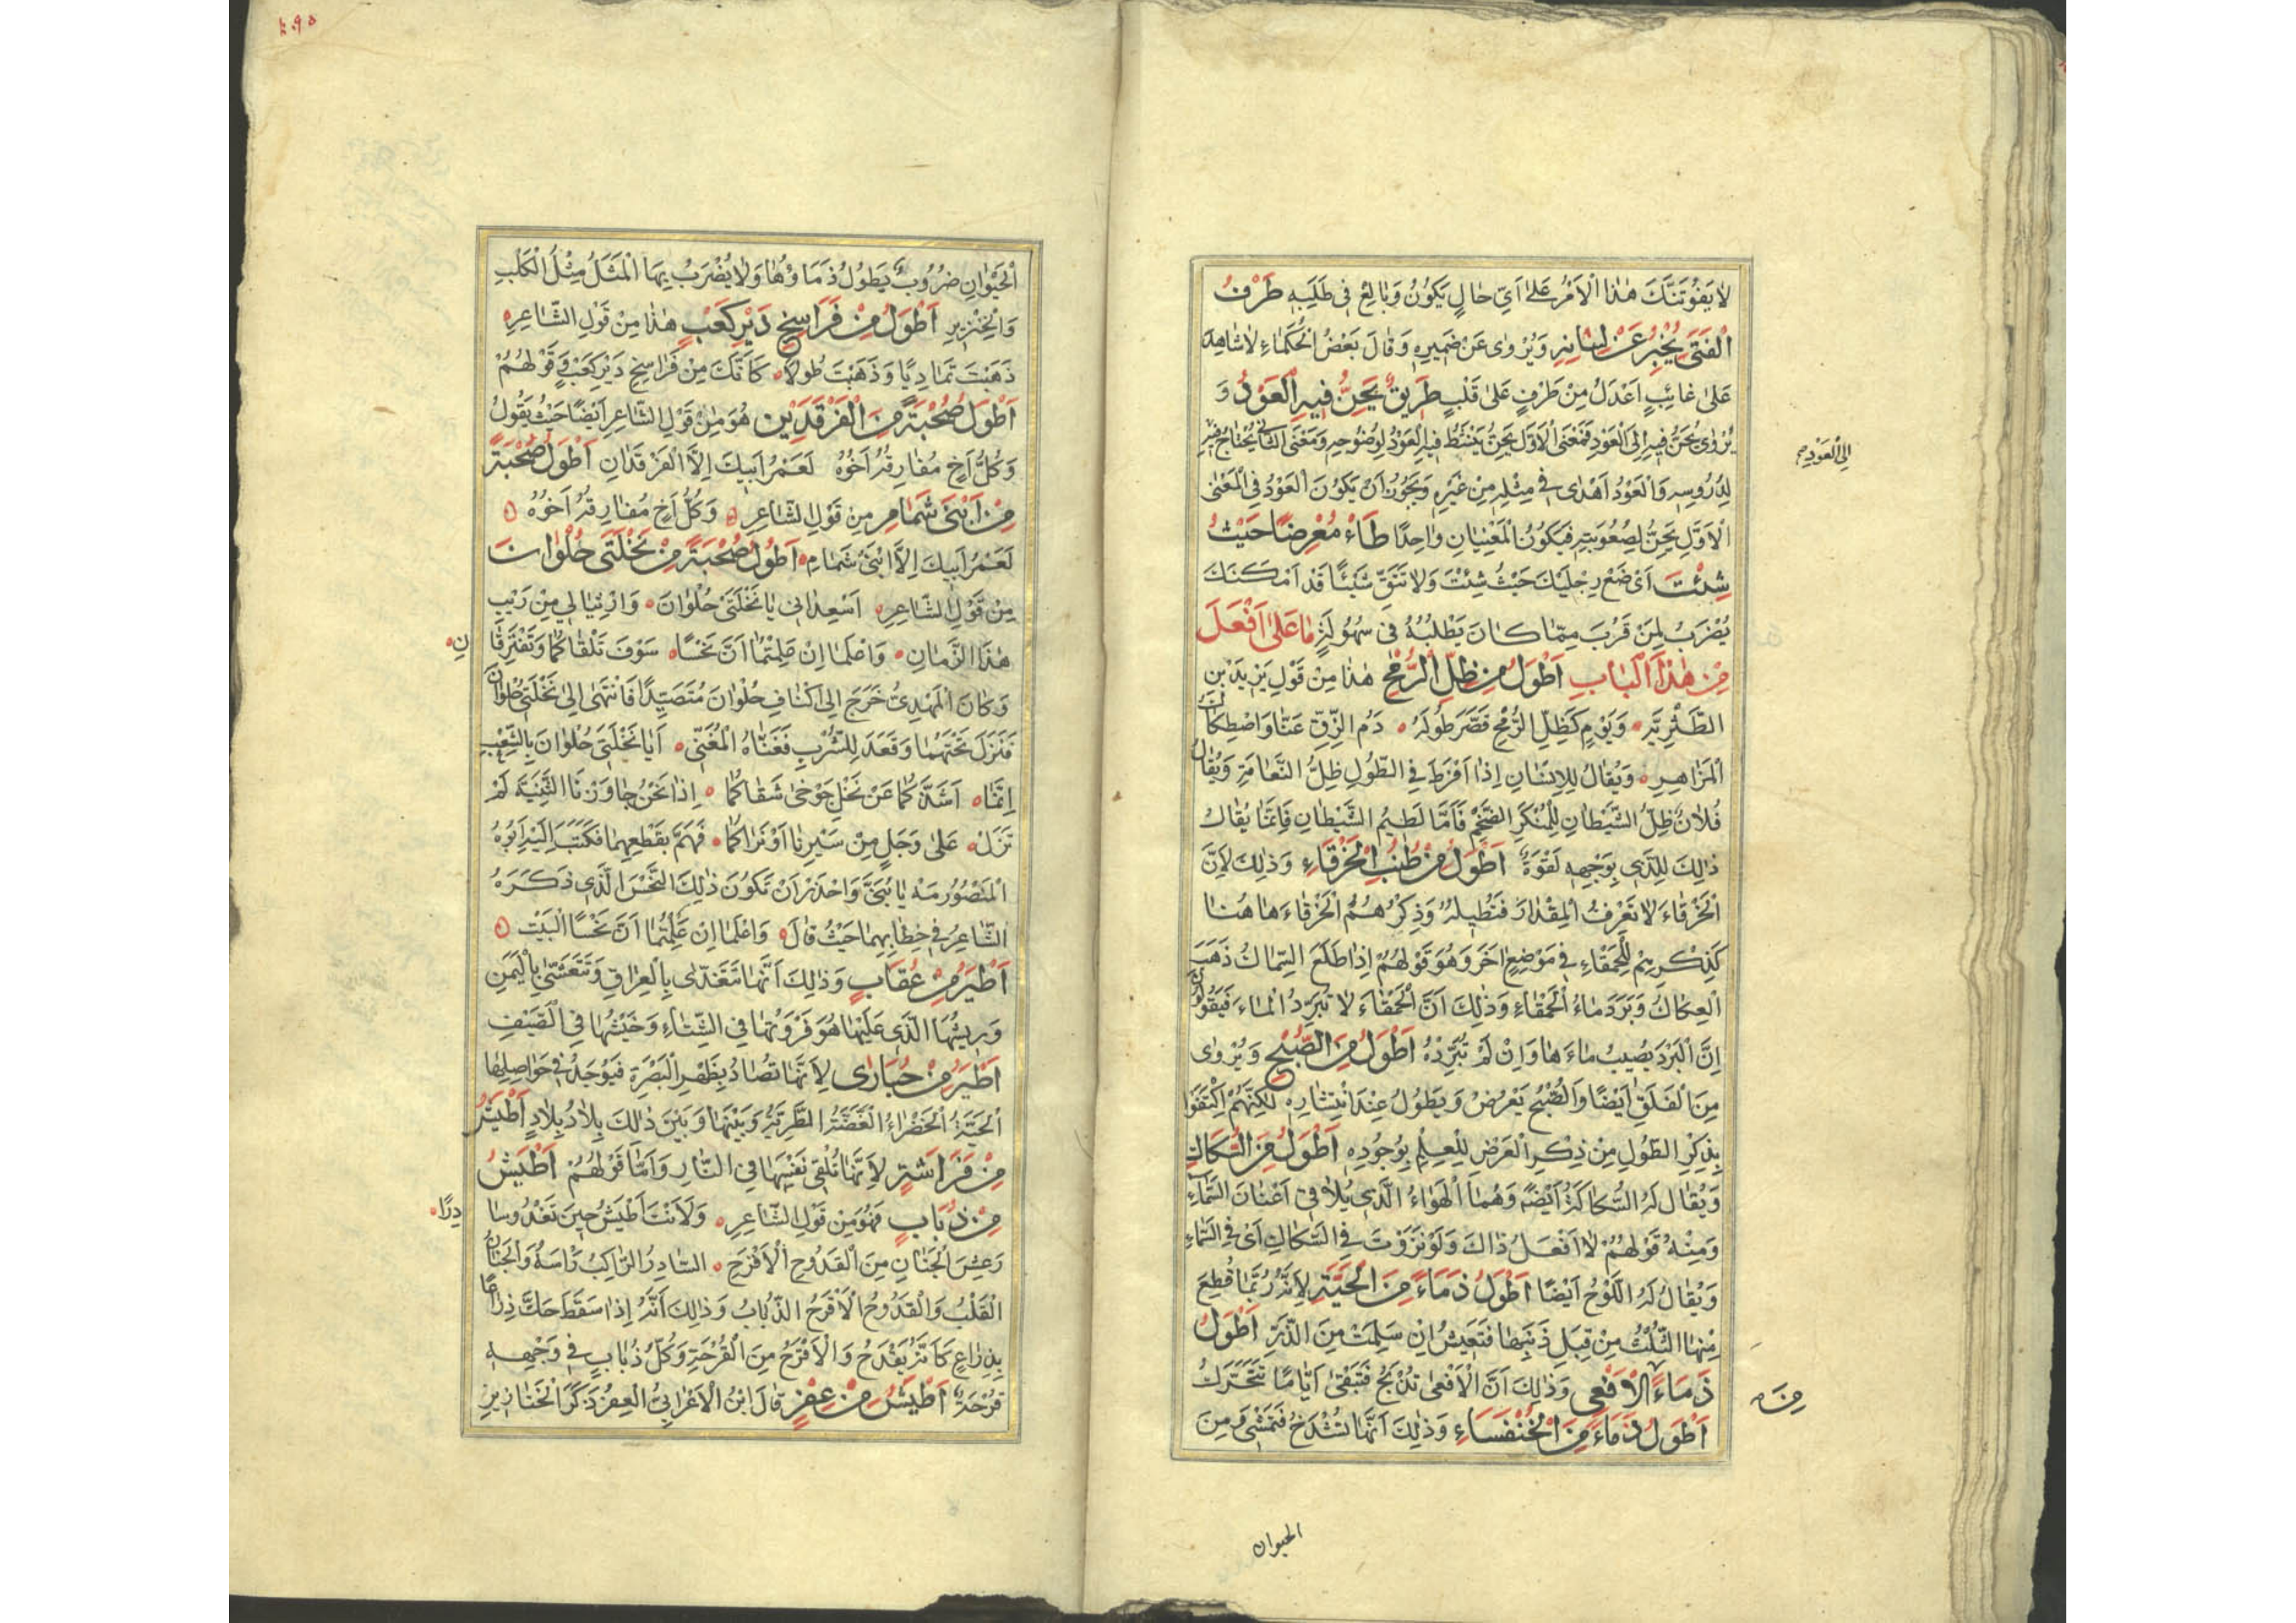 لَا يَفُوتَنَّكَ هٰذَا الْاَمْرُ عَلٰى اَيِّ حَالٍ يَكُونُ وَبَالِغْ فِى طَلَبِهِ طَرْفُ
الْفَتٰى يُخْبِرُ عَنْ لِسَانِهِ وَيُرْوٰى عَنْ ضَمِيرِهِ وَقَالَ بَعْضُ الْحُكَمَاءِ لَا شَاهِدَ
عَلٰى غَائِبٍ اَعْدَلُ مِنْ طَرْفٍ عَلٰى قَلْبٍ طَرِيقٌ يَحِنُّ فِيهِ الْعَوْدُ وَ
يُرْوٰى يُحَنُّ فِيهِ اِلَى الْعَوْدِ فَمَعْنَى الْاَوَّلِ يَحِنُّ يَنْشَطُ فِيهِ الْعَوْدُ لِوُضُوحِهِ وَمَعْنَى الثَّانِى يُحْتَاجُ فِيهِ
اِلَى الْعَوْدِ صح
لِدُرُوسِهِ وَالْعَوْدُ اَهْدٰى فِى مِثْلِهِ مِنْ غَيْرِهِ وَيَجُوزُ اَنْ يَكُونَ الْعَوْدُ فِى الْمَعْنَى
الْاَوَّلِ يَحِنُّ لِصُعُوبَتِهِ فَيَكُونُ الْمَعْنَيَانِ وَاحِدًا طَاْ مُعْرِضًا حَيْثُ
شِئْتَ اَىْ ضَعْ رِجْلَيْكَ حَيْثُ شِئْتَ وَلَا تَتَّقِ شَيْئًا قَدْ اَمْكَنَكَ
يُضْرَبُ لِمَنْ قَرُبَ مِمَّا كَانَ يَطْلُبُهُ فِى سُهُولَةٍ مَا عَلٰى اَفْعَلَ
مِنْ هٰذَا الْبَابِ اَطْوَلُ مِنْ ظِلِّ الرُّمْحِ هٰذَا مِنْ قَوْلِ يَزِيدَ بْنِ
الطَّثْرِيَّةِ وَيَوْمٍ كَظِلِّ الرُّمْحِ قَصَّرَ طُولَهُ دَمُ الزِّقِّ عَنَّا وَاصْطِكَاكُ
الْمَزَاهِرِ وَيُقَالُ لِلْاِنْسَانِ اِذَا اَفْرَطَ فِى الطُّولِ ظِلُّ النَّعَامَةِ وَيُقَالُ
فُلَانٌ ظِلُّ الشَّيْطَانِ لِلْمُنْكَرِ الضَّخْمِ فَاَمَّا لَطِيمُ الشَّيْطَانِ فَاِنَّمَا يُقَالُ
ذٰلِكَ لِلَّذِى بِوَجْهِهِ لَقْوَةٌ اَطْوَلُ مِنْ طُنُبِ الْخَرْقَاءِ وَذٰلِكَ لِاَنَّ
الْخَرْقَاءَ لَا تَعْرِفُ الْمِقْدَارَ فَتُطِيلُهُ وَذِكْرُهُمُ الْخَرْقَاءَ هَاهُنَا
كَذِكْرِهِمْ لِلْحَمْقَاءِ فِى مَوْضِعٍ اٰخَرَ وَهُوَ قَوْلُهُمْ اِذَا طَلَعَ السِّمَاكُ ذَهَبَ
الْعِكَاكُ وَبَرَدَ مَاءُ الْحَمْقَاءِ وَذٰلِكَ اَنَّ الْحَمْقَاءَ لَا تُبَرِّدُ الْمَاءَ فَيَقُولُونَ
اِنَّ الْبَرْدَ يُصِيبُ مَاءَهَا وَاِنْ لَمْ تُبَرِّدْهُ اَطْوَلُ مِنَ الصُّبْحِ وَيُرْوٰى
مِنَ الْفَلَقِ اَيْضًا وَالصُّبْحُ يَعْرُضُ وَيَطُولُ عِنْدَ انْتِشَارِهِ لٰكِنَّهُمْ اكْتَفَوْا
بِذِكْرِ الطُّولِ مِنْ ذِكْرِ الْعَرْضِ لِلْعِلْمِ بِوُجُودِهِ اَطْوَلُ مِنَ السُّكَاكِ
وَيُقَالُ لَهُ السُّكَاكَةُ اَيْضًا وَهُمَا الْهَوَاءُ الَّذِى يُلَاقِى اَعْنَانَ السَّمَاءِ
وَمِنْهُ قَوْلُهُمْ لَا اَفْعَلُ ذَاكَ وَلَوْ نَزَوْتَ فِى السُّكَاكِ اَىْ فِى السَّمَاءِ
وَيُقَالُ لَهُ اللُّوحُ اَيْضًا اَطْوَلُ ذَمَاءً مِنَ الْحَيَّةِ لِاَنَّهُ رُبَّمَا قُطِعَ
مِنْهَا الثُّلُثُ مِنْ قِبَلِ ذَنَبِهَا فَتَعِيشُ اِنْ سَلِمَتْ مِنَ الذَّرِّ اَطْوَلُ
ذَمَاءً الْاَفْعٰى وَذٰلِكَ اَنَّ الْاَفْعٰى تُذْبَحُ فَتَبْقٰى اَيَّامًا تَتَحَرَّكُ
مِنَ صح
اَطْوَلُ ذَمَاءً مِنَ الْخُنْفَسَاءِ وَذٰلِكَ اَنَّهَا تُشْدَخُ فَتَمْشِى وَمِنَ
الحيوان
الْحَيْوَانِ ضُرُوبٌ يَطُولُ ذَمَاؤُهَا وَلَا يُضْرَبُ بِهَا الْمَثَلُ مِثْلُ الْكَلْبِ
وَالْخِنْزِيرِ اَطْوَلُ مِنْ فَرَاسِخِ دَيْرِ كَعْبٍ هٰذَا مِنْ قَوْلِ الشَّاعِرِ
ذَهَبْتَ تَمَادِيًا وَذَهَبْتَ طُولًا كَاَنَّكَ مِنْ فَرَاسِخِ دَيْرِ كَعْبٍ وَقَوْلُهُمْ
اَطْوَلُ صُحْبَةً مِنَ الْفَرْقَدَيْنِ هُوَ مِنْ قَوْلِ الشَّاعِرِ اَيْضًا حَيْثُ يَقُولُ
وَكُلُّ اَخٍ مُفَارِقُهُ اَخُوهُ لَعَمْرُ اَبِيكَ اِلَّا الْفَرْقَدَانِ اَطْوَلُ صُحْبَةً
مِنْ اَبْنَىْ شَمَامِ مِنْ قَوْلِ الشَّاعِرِ وَكُلُّ اَخٍ مُفَارِقُهُ اَخُوهُ
لَعَمْرُ اَبِيكَ اِلَّا ابْنَىْ شَمَامِ اَطْوَلُ صُحْبَةً مِنْ نَخْلَتَىْ حُلْوَانَ
مِنْ قَوْلِ الشَّاعِرِ اَسْعِدَانِى يَا نَخْلَتَىْ حُلْوَانَ وَارْثِيَا لِى مِنْ رَيْبِ
هٰذَا الزَّمَانِ وَاعْلَمَا اِنْ عَلِمْتُمَا اَنَّ نَحْسًا سَوْفَ تَلْقَاكُمَا وَتَفْتَرِقَا
نِ
وَكَانَ الْمَهْدِىُّ خَرَجَ اِلٰى اَكْنَافِ حُلْوَانَ مُتَصَيِّدًا فَانْتَهٰى اِلٰى نَخْلَتَىْ حُلْوَانَ
فَنَزَلَ تَحْتَهُمَا وَقَعَدَ لِلشُّرْبِ فَغَنَّاهُ الْمُغَنِّى اَيَا نَخْلَتَىْ حُلْوَانَ بِالشِّعْبِ
اِنَّمَا اَشَذَّكُمَا عَنْ نَخْلِ جَوْخٰى شَقَاكُمَا اِذَا نَحْنُ جَاوَزْنَا الثَّنِيَّةَ لَمْ
نَزَلْ عَلٰى وَجَلٍ مِنْ سَيْرِنَا اَوْ نَرَاكُمَا فَهَمَّ بِقَطْعِهِمَا فَكَتَبَ اِلَيْهِ اَبُوهُ
الْمَنْصُورُ مَهْ يَا بُنَىَّ وَاحْذَرْ اَنْ تَكُونَ ذٰلِكَ النَّحْسَ الَّذِى ذَكَرَهُ
الشَّاعِرُ فِى خِطَابِهِمَا حَيْثُ قَالَ وَاعْلَمَا اِنْ عَلِمْتُمَا اَنَّ نَحْسًا الْبَيْتَ
اَطْيَرُ مِنْ عُقَابٍ وَذٰلِكَ اَنَّهَا تَتَغَدّٰى بِالْعِرَاقِ وَتَتَعَشّٰى بِالْيَمَنِ
وَرِيشُهَا الَّذِى عَلَيْهَا هُوَ فَرْوَتُهَا فِى الشِّتَاءِ وَخَيْشُهَا فِى الْصَيْفِ
اَطْيَرُ مِنْ حُبَارٰى لِاَنَّهَا تُصَادُ بِظَهْرِ الْبَصْرَةِ فَيُوجَدُ فِى حَوَاصِلِهَا
الْحَبَّةُ الْخَضْرَاءُ الْغَضَّةُ الطَّرِيَّةُ وَبَيْنَهَا وَبَيْنَ ذٰلِكَ بِلَادٌ بِلَادٍ اَطْيَشُ
مِنْ فَرَاشَةٍ لِاَنَّهَا تُلْقِى نَفْسَهَا فِى النَّارِ وَاَمَّا قَوْلُهُمْ اَطْيَشُ
مِنْ ذُبَابٍ فَهُوَ مِنْ قَوْلِ الشَّاعِرِ وَلَاَنْتَ اَطْيَشُ حِينَ تَغْدُو سَا
دِرًا
رَعِشَ الْجَنَانِ مِنَ الْقَدُوحِ الْاَقْرَحِ السَّادِرُ الرَّاكِبُ رَاْسَهُ وَالْجَنَانُ
الْقَلْبُ وَالْقَدُوحُ الْاَقْرَحُ الذُّبَابُ وَذٰلِكَ اَنَّهُ اِذَا سَقَطَ حَكَّ ذِرَاعًا
بِذِرَاعٍ كَاَنَّهُ يَقْدَحُ وَالْاَقْرَحُ مِنَ الْقُرْحَةِ وَكُلُّ ذُبَابٍ فِى وَجْهِهِ
قُرْحَةٌ اَطْيَشُ مِنْ عِفْرٍ قَالَ ابْنُ الْاَعْرَابِىِّ الْعِفْرُ ذَكَرُ الْخَنَازِيرِ